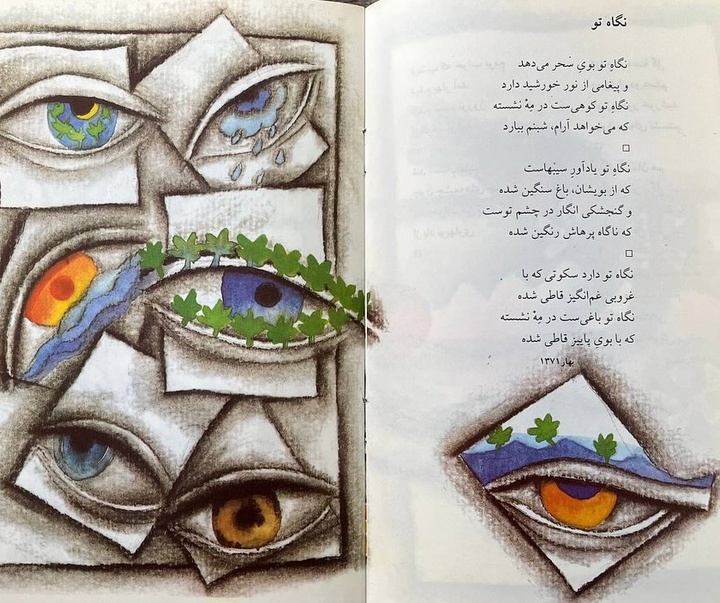 نگاه تو
نگاهِ تو بویِ سَحر می‌دهد
و پیغامی از نور خورشید دارد
نگاهِ تو کوهی‌ست در مِهْ نشسته
که می‌خواهد آرام، شبنم ببارد
نگاهِ تو یادآورِ سیبهاست
که از بویشان، باغ سنگین شده
و گنجشکی انگار در چشم توست
که ناگاه پرهاش رنگین شده
نگاه تو دارد سکوتی که با
غروبی غم‌انگیز قاطی شده
نگاه تو باغی‌ست در مِهْ نشسته
که با بویِ پاییز قاطی شده
بهار ۱۳۷۱